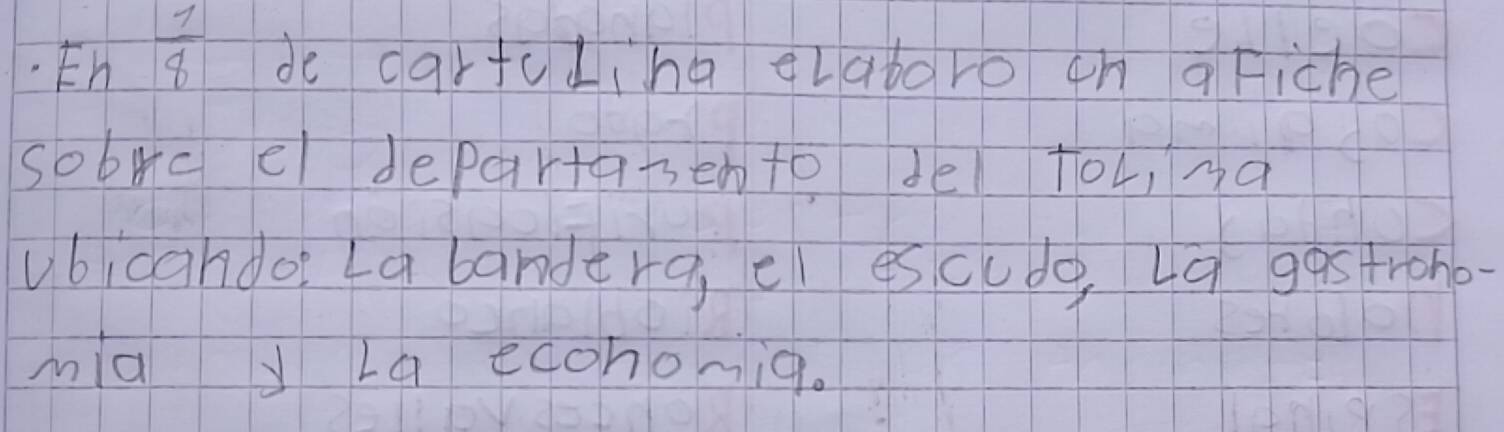 .En 1/8 de cartuLina eLaboro un aFiche
sobre el dePartamento del ToLima
ubicando: La bandera, el escudo, La gastrono-
mia y La economia.